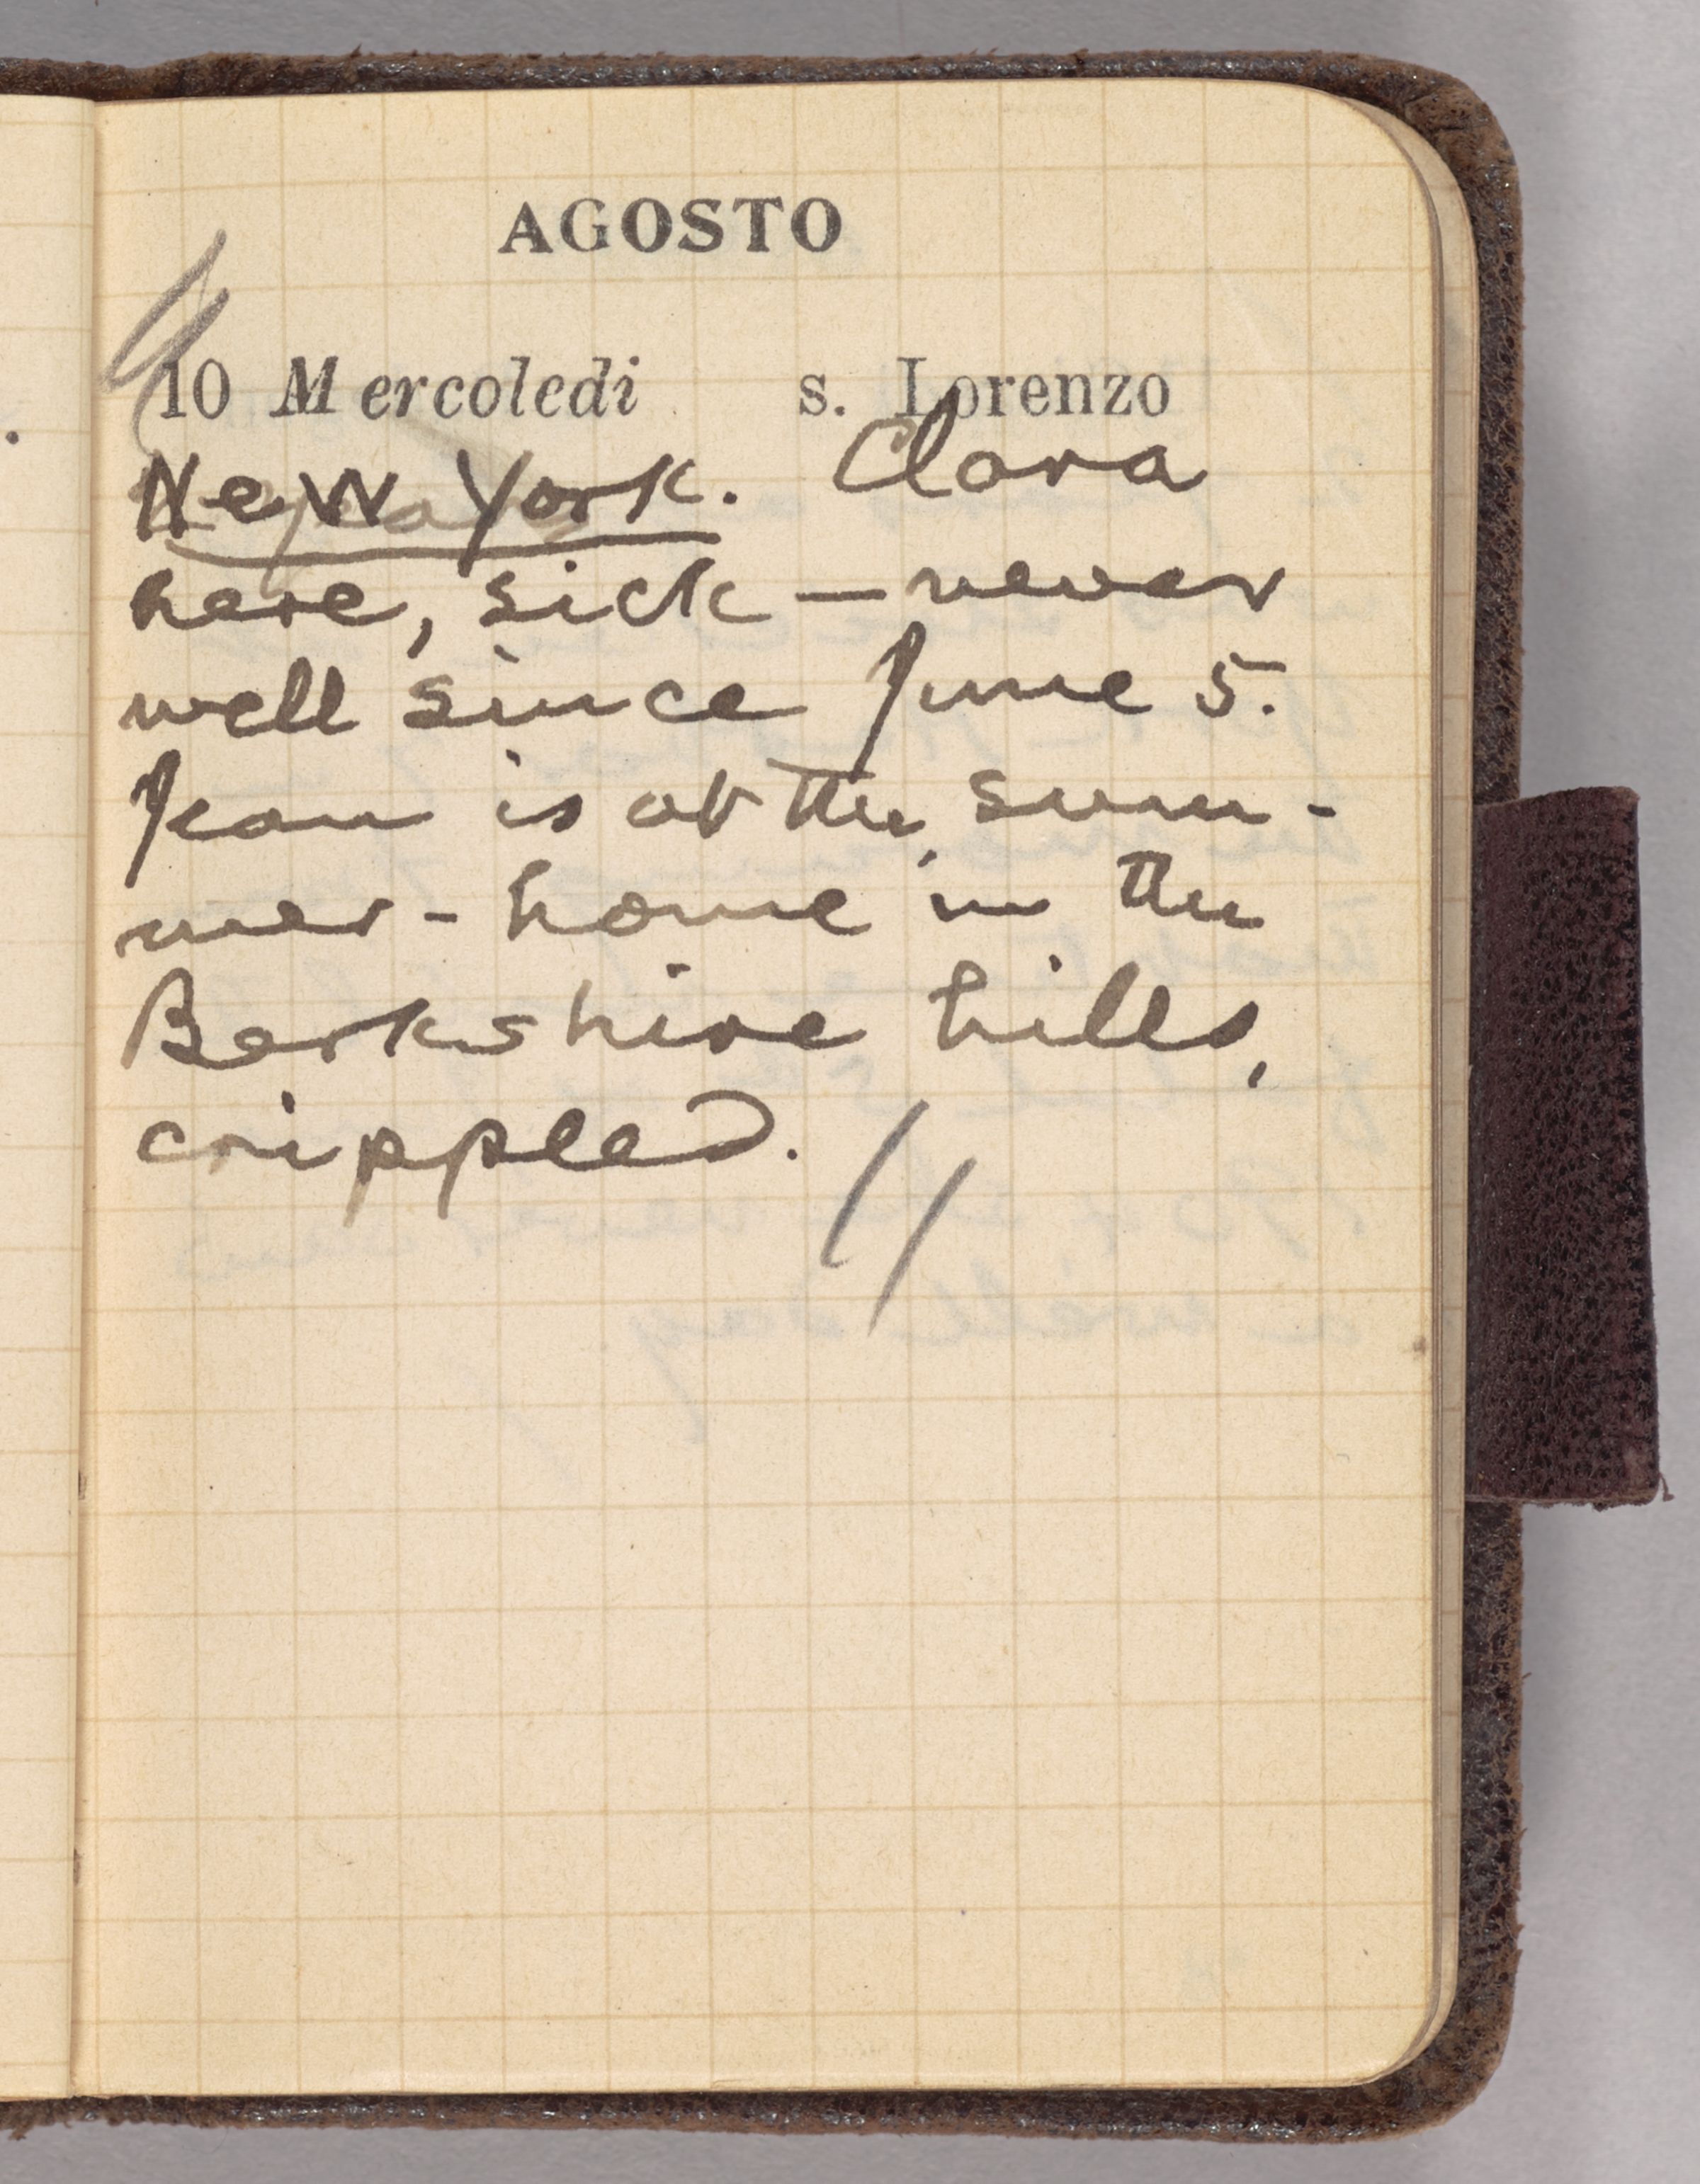 AGOSTO
10 Mercoledi s. Lorenzo
New York. Clara
here, sick — never
well since June 5.
Jean is at the sum-
mer-home in the
Berkshire hills,
crippled.